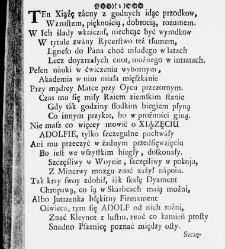 TEn Xiążę zacny z godnych idąc przodkow,
Wzrostem, pięknością, dobrocią, rozumem.
W Ich ślady wkraczał, niechcąc być wyrodkow
W tytule zwány Rycerstwo też tłumem,
Lgneło do Pana choć młodego w latach
Lecz doyzrzałych cnot, możnego w intratach.
Pełen náuki w ćwiczeniá wybornym,
Akademia w nim miałá mięszkánie
Przy mądrey Matce przy Oycu przezornym.
Czas mu się miły Ráiem ziemskim stánie
Gdy ták godziny słodkim biegiem płyną
Co innym przykre, bo w prożności giną.
Nie máłz co więcey mowić o XIĄZĘCIU
ADOLFIE, tylko szczegulne pochwały
Ani mu przeczyć w żadnym przedsięwzięciu
Bo iest we wszystkim biegły, doskonały.
Szczęśliwy w Woynie, szczęśliwy w pokoju,
Z Minerwy mozgu znáć záżył nápoiu.
Ták kray swoy zdobił, iák skałę Dyament
Chropawą, co ią w Skarbcach maią możni,
Albo Jutrzenká błękitny Firmament
Oświeca, tym się ADOLF od nich rożni,
Znáć Kleynot z lustru, znáć co kamień prosty
Snádno Pszenicę poznáć między osty.
Szczę-